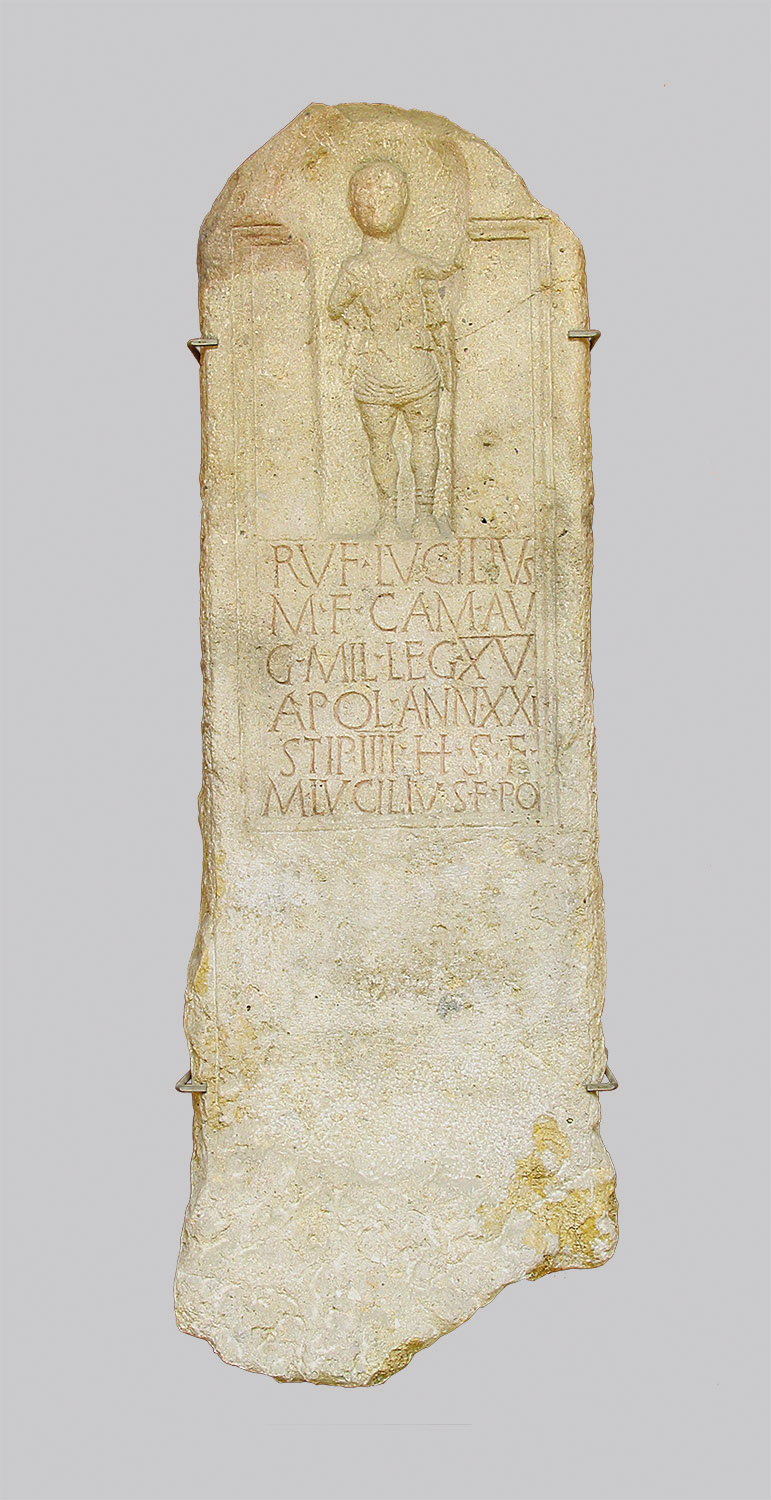 RVF·LVCILIVS
M·F·CAM·AV
G·MIL·LEG·XV
APOL·ANN·XXI
STIP·IIII·H·S·F·
M·LVCILIV·S·F·PO